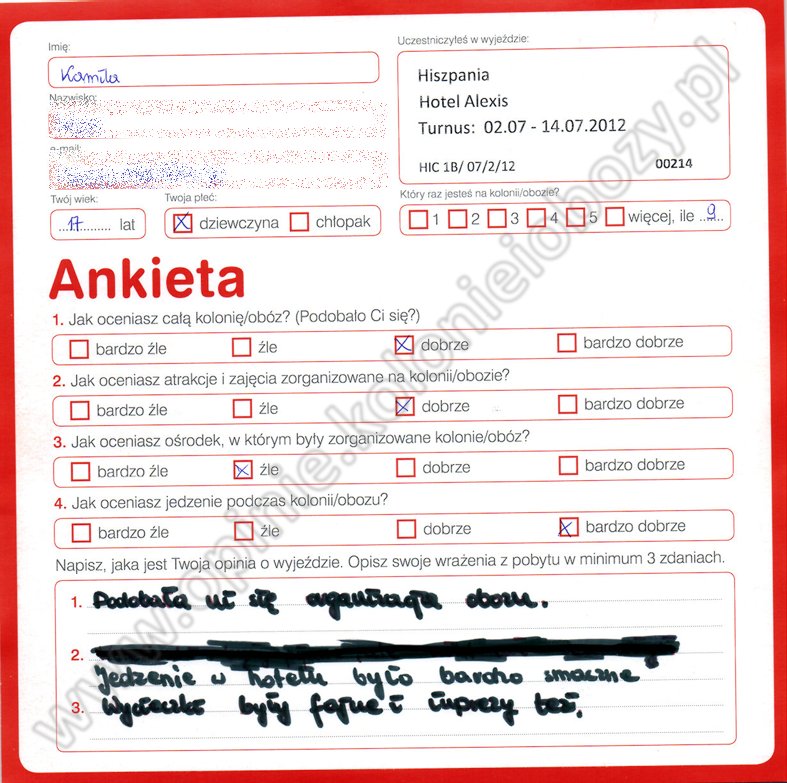 Imię:
Kamila
Uczestniczyłeś w wyjeździe:
Hiszpania
Hotel Alexis
Turnus: 02.07 - 14.07.2012
HIC 1B/ 07/2/12 00214
Nazwisko:
e-mail:
Twój wiek:
17 lat
Twoja płeć:
dziewczyna chłopak
Który raz jesteś na kolonii/obozie?
1 2 3 4 5 więcej, ile 9
Ankieta
1. Jak oceniasz całą kolonię/obóz? (Podobało Ci się?)
bardzo źle źle dobrze bardzo dobrze
2. Jak oceniasz atrakcje i zajęcia zorganizowane na kolonii/obozie?
bardzo źle źle dobrze bardzo dobrze
3. Jak oceniasz ośrodek, w którym były zorganizowane kolonie/obóz?
bardzo źle źle dobrze bardzo dobrze
4. Jak oceniasz jedzenie podczas kolonii/obozu?
bardzo źle źle dobrze bardzo dobrze
Napisz, jaka jest Twoja opinia o wyjeździe. Opisz swoje wrażenia z pobytu w minimum 3 zdaniach.
1. Podobała mi się organizacja obozu.
2.
Jedzenie w hotelu było bardzo smaczne
3. Wycieczki były fajne i imprezy też.
www.opinie.kolonieiobozy.pl